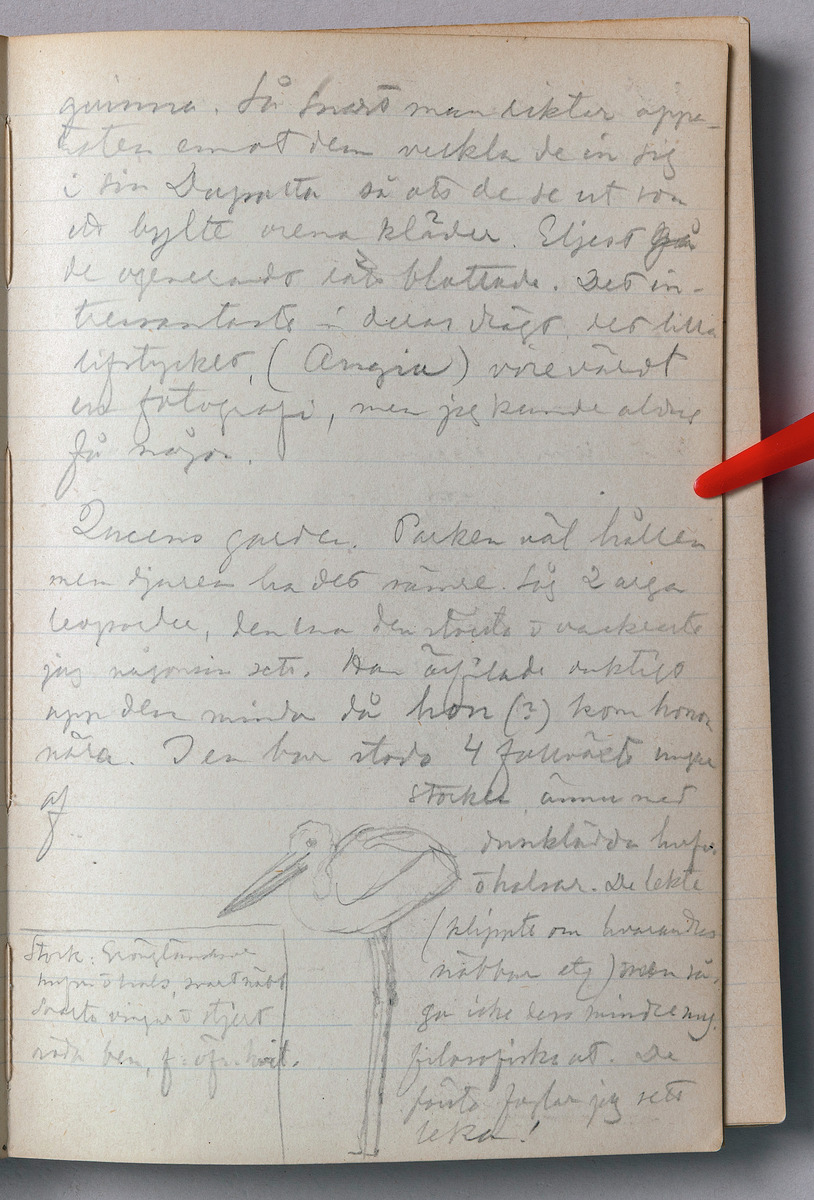 quinna. Så snart man rikter appa-
raten emot dem veckla de in sig
i sin Dupatta så att de se ut som
ett bylte orena kläder. Eljest gå
de ogenerandt blottade. Det in-
tressantaste i deras drägt, det lilla
lifstycket, (Angia) vore värdt
en fotografi, men jag kunde aldrig
få någon.
Queens garden. Parken väl hållen
men djuren ha det sämre. Såg 2 arga
leoparder, den ena den största o vackraste
jag någonsin sett. Han duktigt
upp den mindre då hon (?) kom honom
nära. I en bur stodo 4 fullväxta ungar
af storkar ännu med
dunklädda hufv.
o halsar. De lekte
(klippte om hvarandras
näbbar etc) men så-
go icke dess mindre myc.
filosofiska ut. De
första foglar jag sett
leka!
Stork: Gråogla
hufvud o hals, svart näbb
Svarta vingar o stjert
röda ben, f. öfr. hvit.